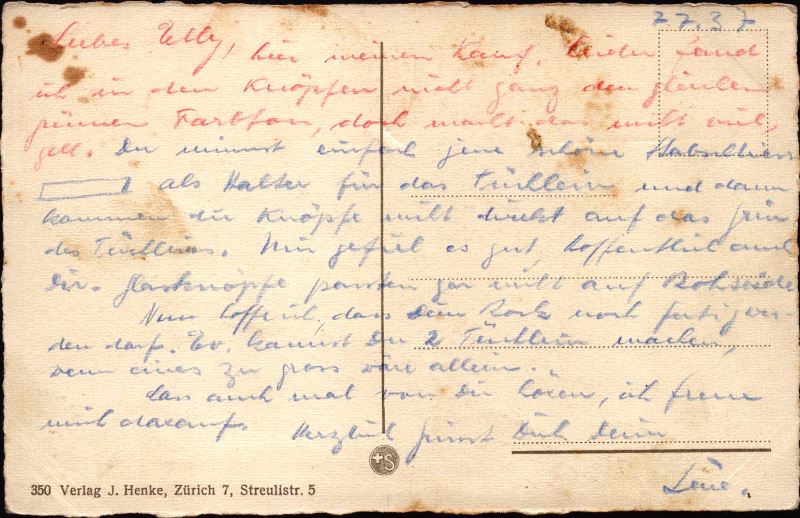 7 7. 37
Liebes Elly, hier meinen Kauf. Leider fand
ich in den Knöpfen nicht ganz den gleichen
Farbton, doch macht das nicht viel,
gell. Du nimmst einfach jene schöne
als Halter für das Tüchlein und dann
kommen die Knöpfe nicht direkt auf das grün
des Tüchleins. Mir gefiel es gut, hoffentlich auch
Dir. Glasknöpfe passten gar nicht auf Rohseide
Nun hoffe ich, dass Dein Rock noch fertig wer-
den darf. Ev. kannst Du 2 Tüchlein machen,
wenn eines zu gross wäre allein.
Lass auch mal von Dir hören, ich freue
mich darauf. Herzlich grüsst Dich Deine
Lene.
350 Verlag J. Henke, Zürich 7, Streulistr. 5
+S